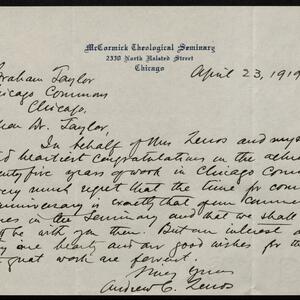 McCormick Theological Seminary
2330 North Halsted Street
Chicago
April 23, 1919
Graham Taylor
Chicago Commons
Chicago,
Dr. Taylor,
In behalf of Mrs Zenos and mys
heartiest congratulations in the
five years of work in Chicago Com
very much regret that the time for com
anniversary is exactly that of our Commen
in the Seminary and that we shall
be with you then. But our interest a
are hearty and our good wishes for th
great work are fervent.
Very yours
Andrew C. Zenos